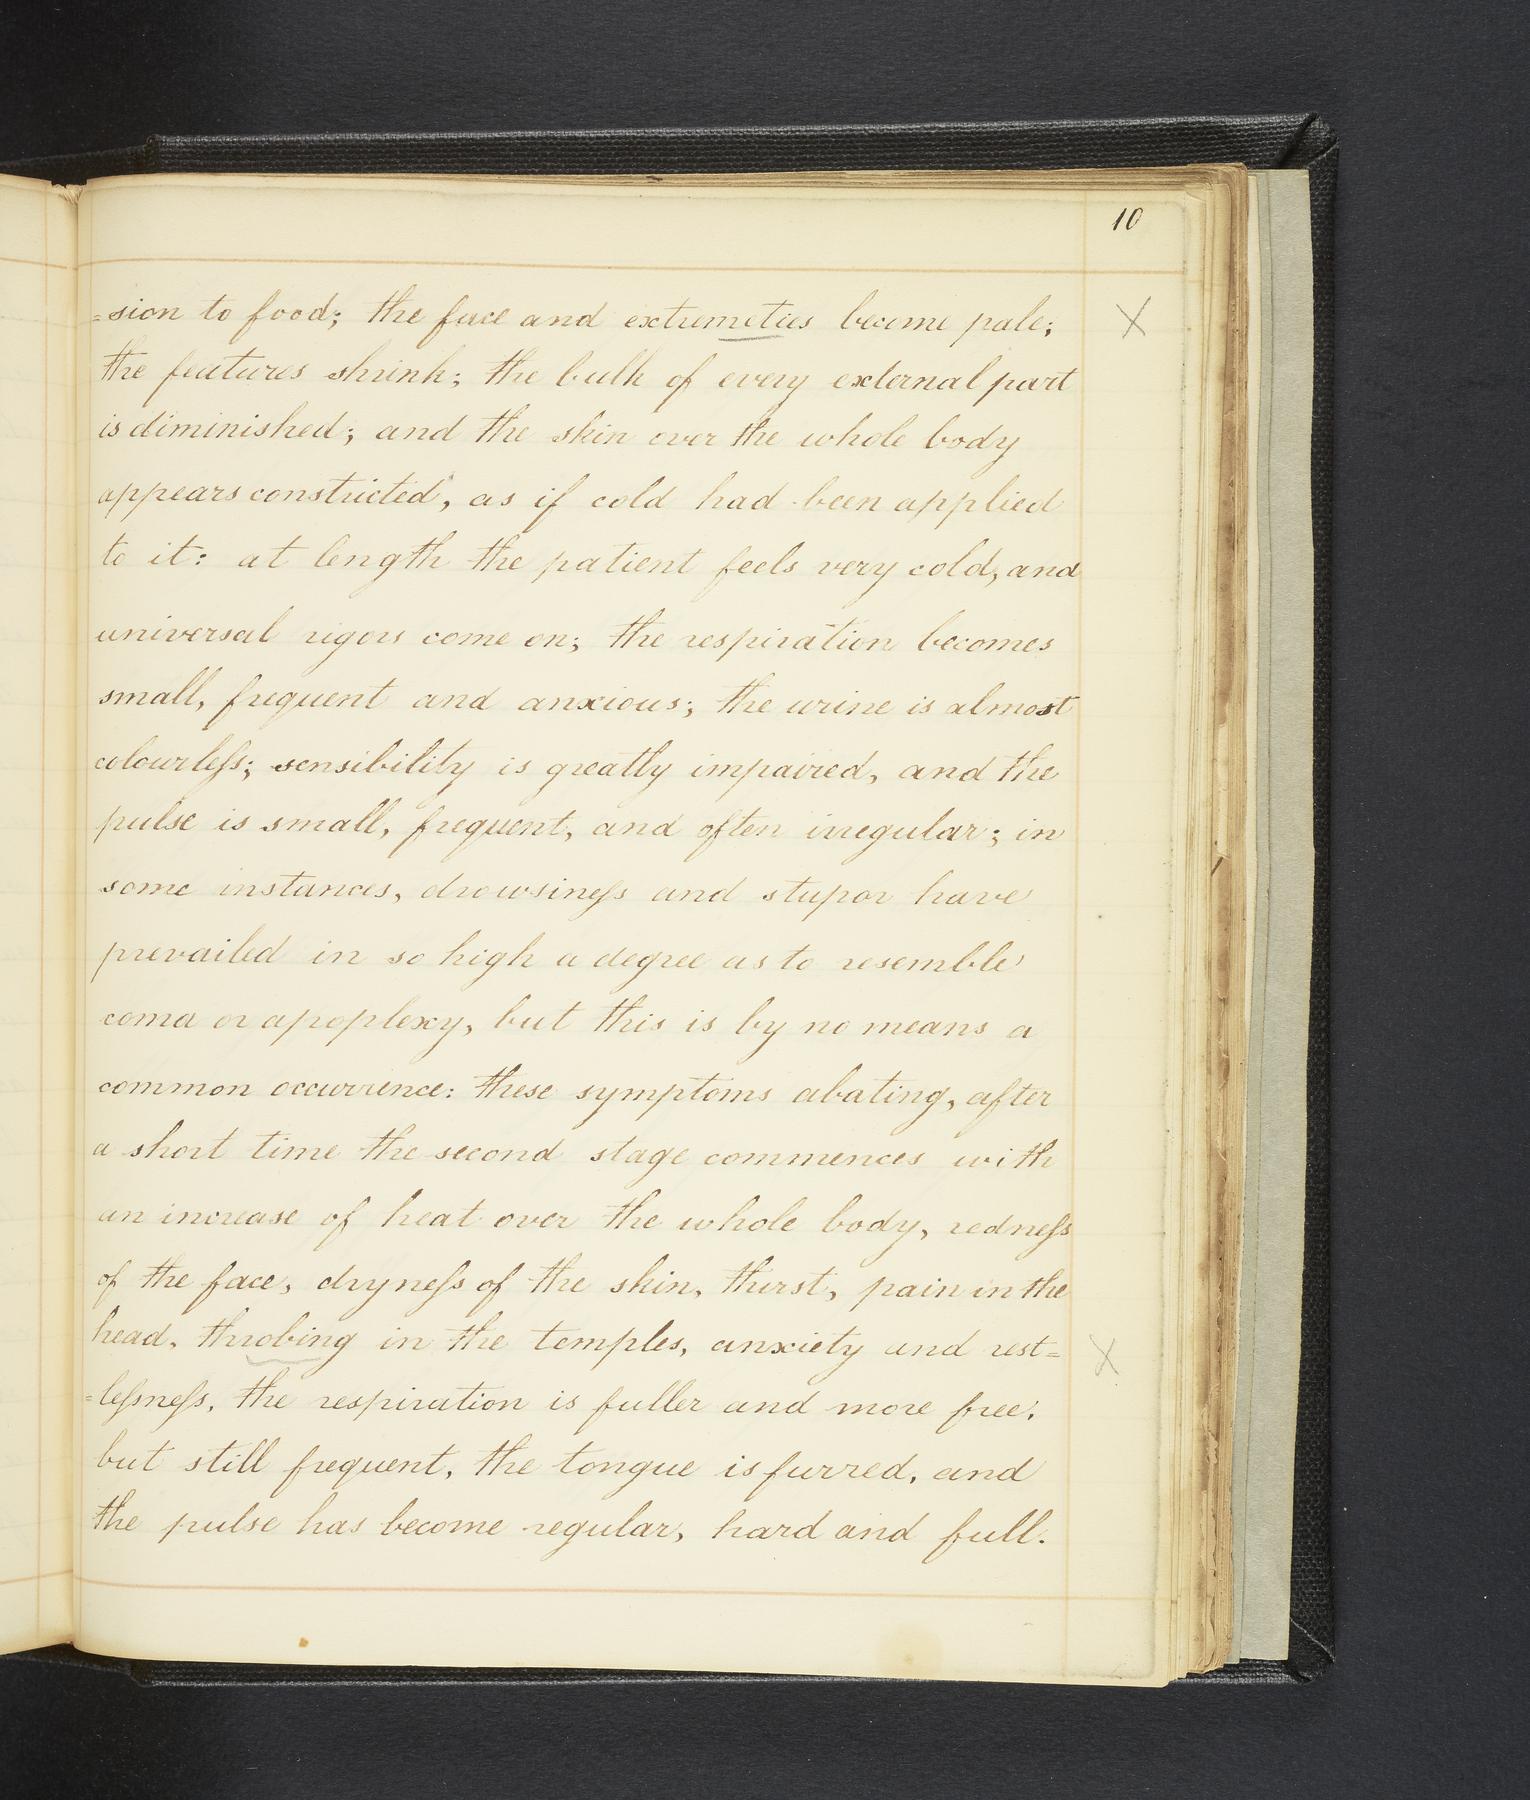 10
=sion to food; the face and extremeties become pale; X
the features shrink; the bulk of every external part
is diminished; and the skin over the whole body
appears constricted, as if cold had been applied
to it: at length the patient feels very cold, and
universal rigors come on; the respiration becomes
small, frequent and anxious; the urine is almost
colourleſs; sensibility is greatly impaired, and the
pulse is small, frequent, and often irregular; in
some instances, drowsineſs and stupor have
prevailed in so high a degree as to resemble
coma or apoplexy, but this is by no means a
common occurrence: these symptoms abating, after
a short time the second stage commences with
an increase of heat over the whole body, redneſs
of the face, dryneſs of the skin, thirst, pain in the
head, throbing in the temples, anxiety and rest= X
=leſsneſs, the respiration is fuller and more free,
but still frequent, the tongue is furred, and
the pulse has become regular, hard and full.